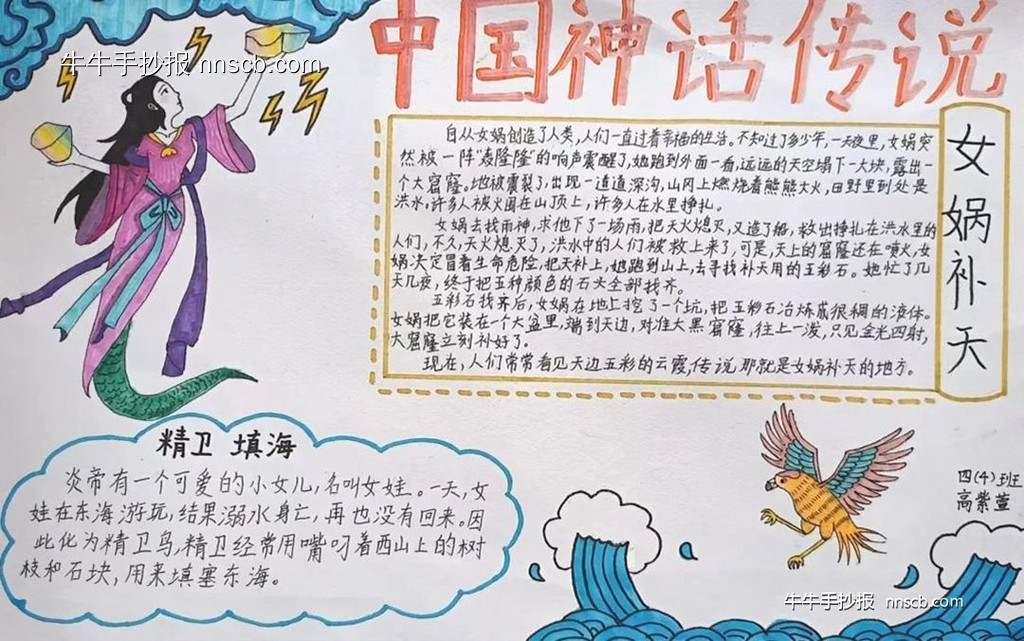 牛牛手抄报 nnscb.com
中国神话传说
女娲补天
自从女娲创造了人类,人们一直过着幸福的生活。不知过了多少年,一天夜里,女娲突
然被一阵"轰隆隆"的响声震醒了,她跑到外面一看,远远的天空塌下一大块,露出一
个大窟窿。地被震裂了,出现一道道深沟,山冈上燃烧着熊熊大火,田野里到处是
洪水,许多人被火围在山顶上,许多人在水里挣扎。
女娲去找雨神,求他下了一场雨,把天火熄灭,又造了船,救出挣扎在洪水里的
人们,不久,天火熄灭了,洪水中的人们被救上来了,可是,天上的窟窿还在喷火,女
娲决定冒着生命危险,把天补上,她跑到山上,去寻找补天用的五彩石。她忙了几
天几夜,终于把五种颜色的石头全部找齐。
五彩石找齐后,女娲在地上挖了一个坑,把五彩石冶炼成很稠的液体。
女娲把它装在一个大盆里,端到天边,对准大黑窟窿,往上一泼,只见金光四射,
大窟窿立刻补好了。
现在,人们常常看见天边五彩的云霞,传说那就是女娲补天的地方。
精卫 填海
炎帝有一个可爱的小女儿,名叫女娃。一天,女
娃在东海游玩,结果溺水身亡,再也没有回来。因
此化为精卫鸟,精卫经常用嘴叼着西山上的树
枝和石块,用来填塞东海。
四(4)班
高紫萱
牛牛手抄报 nnscb.com